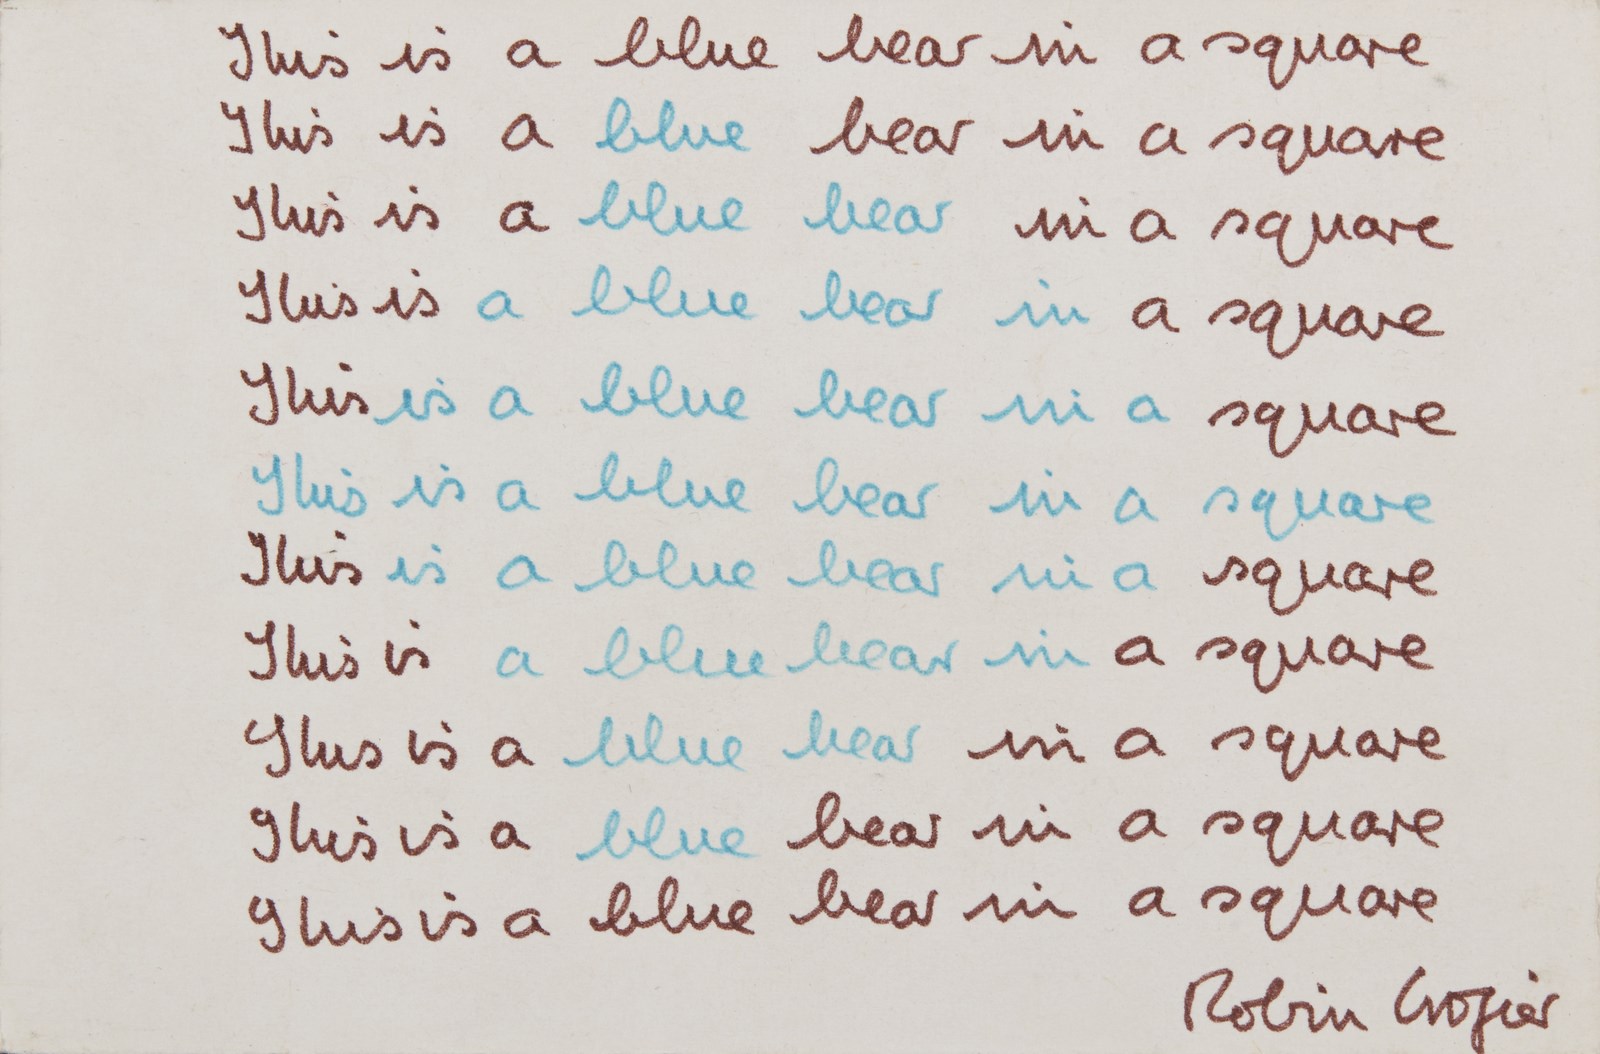 This is a blue bear in a square
This is a blue bear in a square
This is a blue bear in a square
This is a blue bear in a square
This is a blue bear in a square
This is a blue bear in a square
This is a blue bear in a square
This is a blue bear in a square
This is a blue bear in a square
This is a blue bear in a square
This is a blue bear in a square
Robin Crozier